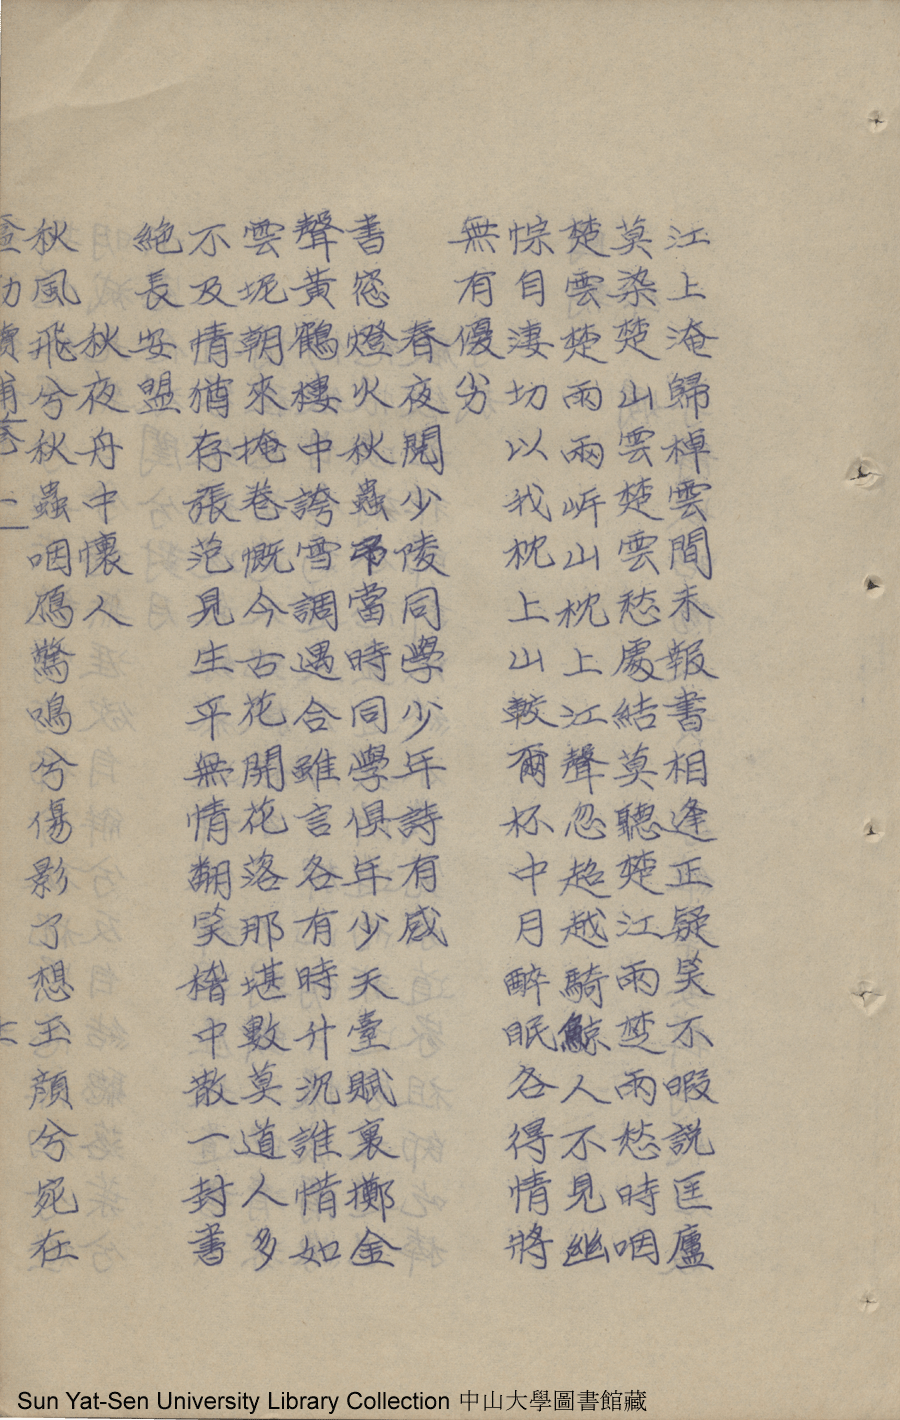 江上淹歸棹雲間未報書相逢正疑笑不暇說匡廬
莫染楚山雲楚雲愁處結莫聽楚江雨楚雨愁時咽
楚雲楚雨兩岍山枕上江聲忽超越騎鯨人不見幽
悰自淒切以我枕上山較爾杯中月醉眠各得情將
無有優劣
春夜閱少陵同學少年詩有感
書窓燈火秋蟲弔當時同學俱年少天臺賦裏擲金
聲黃鶴樓中誇雪調遇合雖言各有時升沉誰惜如
雲坭朝來掩巷慨今古花開花落那堪數莫道人多
不及情猶存張范見生平無情翻笑嵇中散一封書
絕長安盟
秋夜舟中懷人
秋風飛兮秋蟲咽鴈驚鳴兮傷影了想玉顏兮宛在
Sun Yat-Sen University Library Collection 中山大學圖書館藏